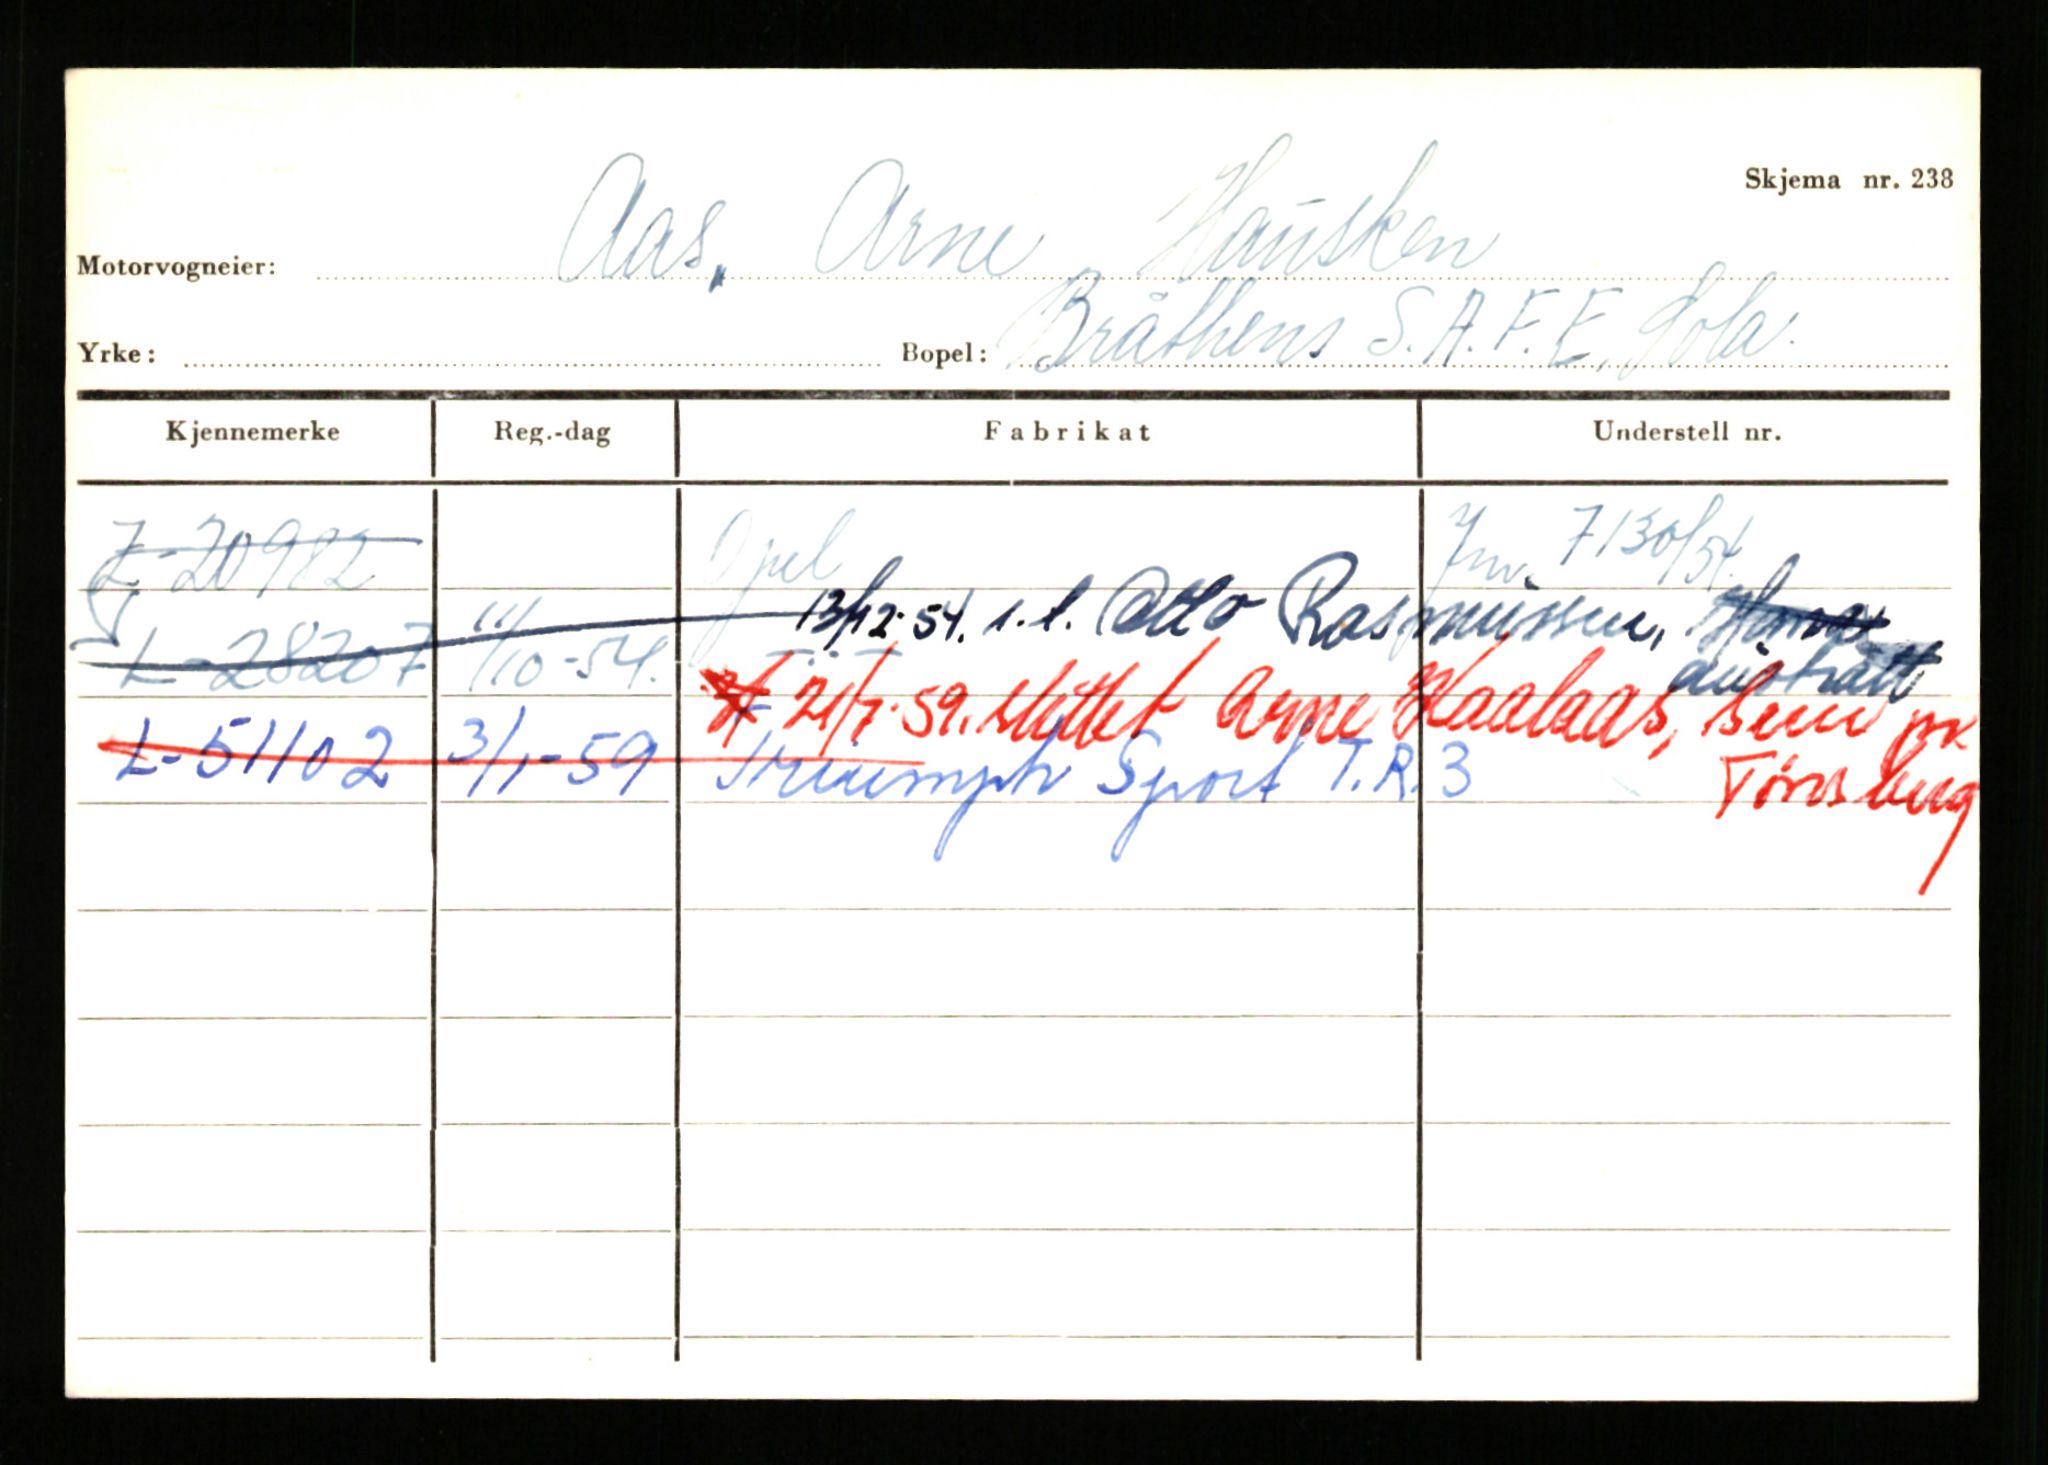 Skjema nr. 238
Motorvogneier: Aas, Arne Hausken
Yrke: Bopel: Bråthens S.A.F.E, Sola.
Kjennemerke Reg.-dag Fabrikat Understell nr.
20982 Opel 7130/54.
13/12-54. s.l. Otto Rasmussen,
L-28207 11/10-54. austratt
21/7-59. slettet Arne Haalaas, Sem pr
L-51102 3/1-59 Triumph Sport T.R.3 Tønsberg